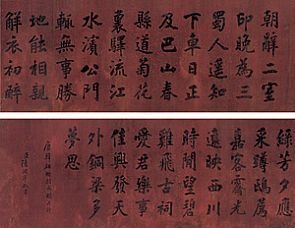 朝辭二室
印晚為三
蜀人遥知
下車日正
及巴山春
縣道菊花
裏驛流江
水濱公門
輒無事勝
地能相親
解衣初醉
綠芳夕應
采蹲鴟薦
嘉客霽光
遥映西川
時聞望碧
雞飛古祠
愛君樂事
佳興發天
外銅梁多
夢思